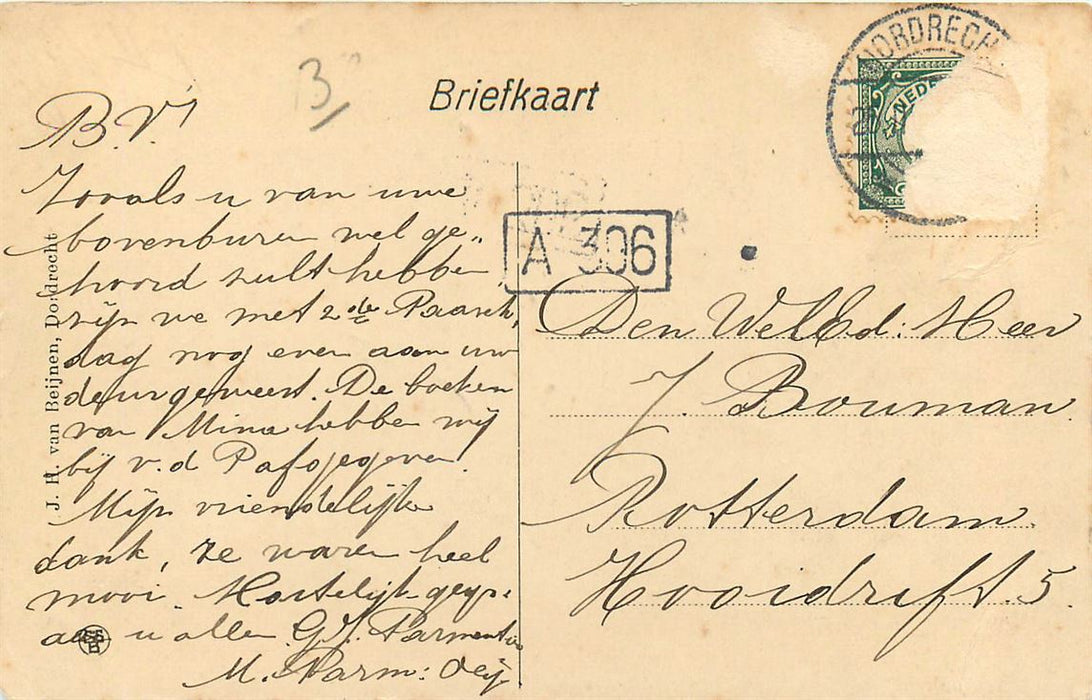 3
Briefkaart
DORDRECHT
NEDE
A 306
B.V.!
Zooals u van uwe
bovenburen wel ge„
hoord zult hebben
zijn we met 2de Paasch„
dag nog even aan uw
deur geweest. De boeken
van Mina hebben wij
bij v.d. Paf gegeven.
Mijn vriendelijke
dank, ze waren heel
mooi. Hartelijk gegr.
u allen G.J. Parmentier
M. Parm:
Den WelEd: Heer
J. Bouman
Rotterdam.
Hooidrift. 5.
J. H. van Beijnen, Dordrecht